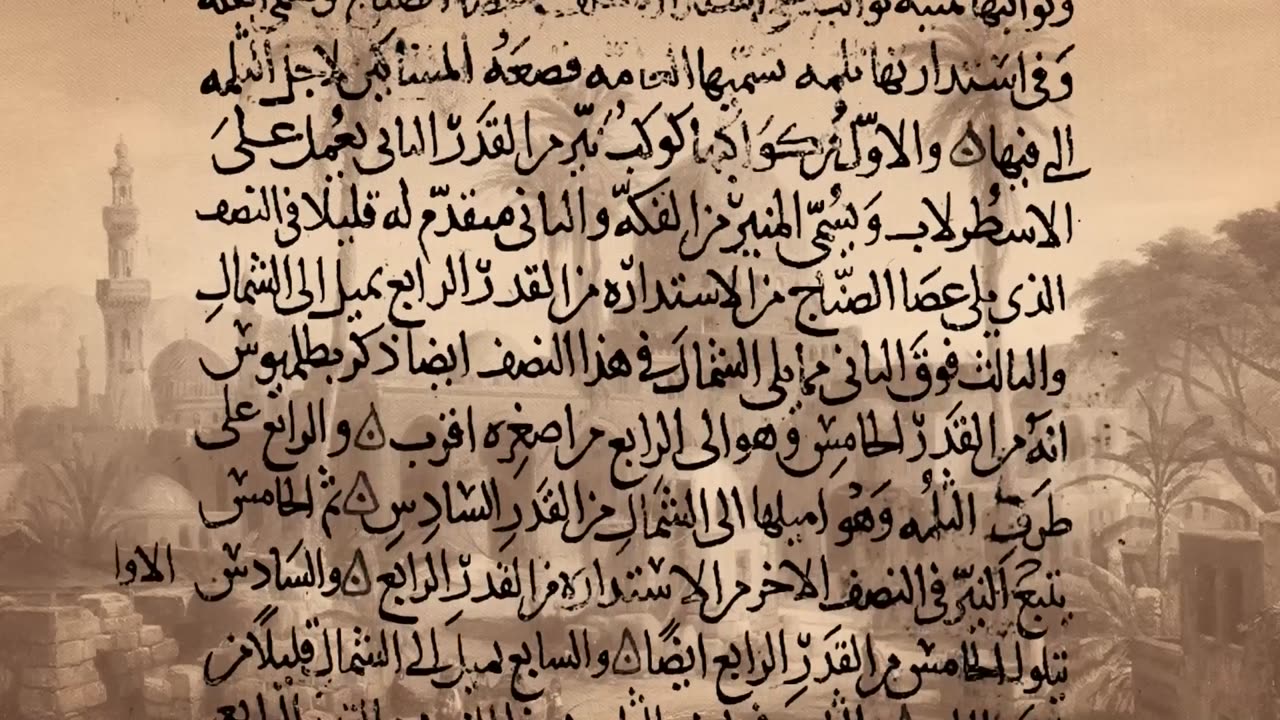 وفى استدارتها ثلمه تسميها العامه قصعه المساكين لاجل الثلمه
الى فيها ه والاول من كواكبها كوكب نير من القدر الثانى يعمل على
الاسطرلاب ويسمى المنير من الفكه والثانى متقدم له قليلا فى النصف
الذى يلى عصا الصناج من الاستداره من القدر الرابع يميل الى الشمال
والثالث فوق الثانى مما يلى الشمال فى هذا النصف ايضا ذكر بطلميوس
انه من القدر الخامس وهو الى الرابع من اصغره اقرب ه والرابع على
طرف الثلمه وهو اميلها الى الشمال من القدر السادس ه ثم الخامس
يتبع النير فى النصف الاخر من الاستداره من القدر الرابع ه والسادس الاوا
يتلوا الخامس من القدر الرابع ايضا ه والسابع يميل الى الشمال قليلا من